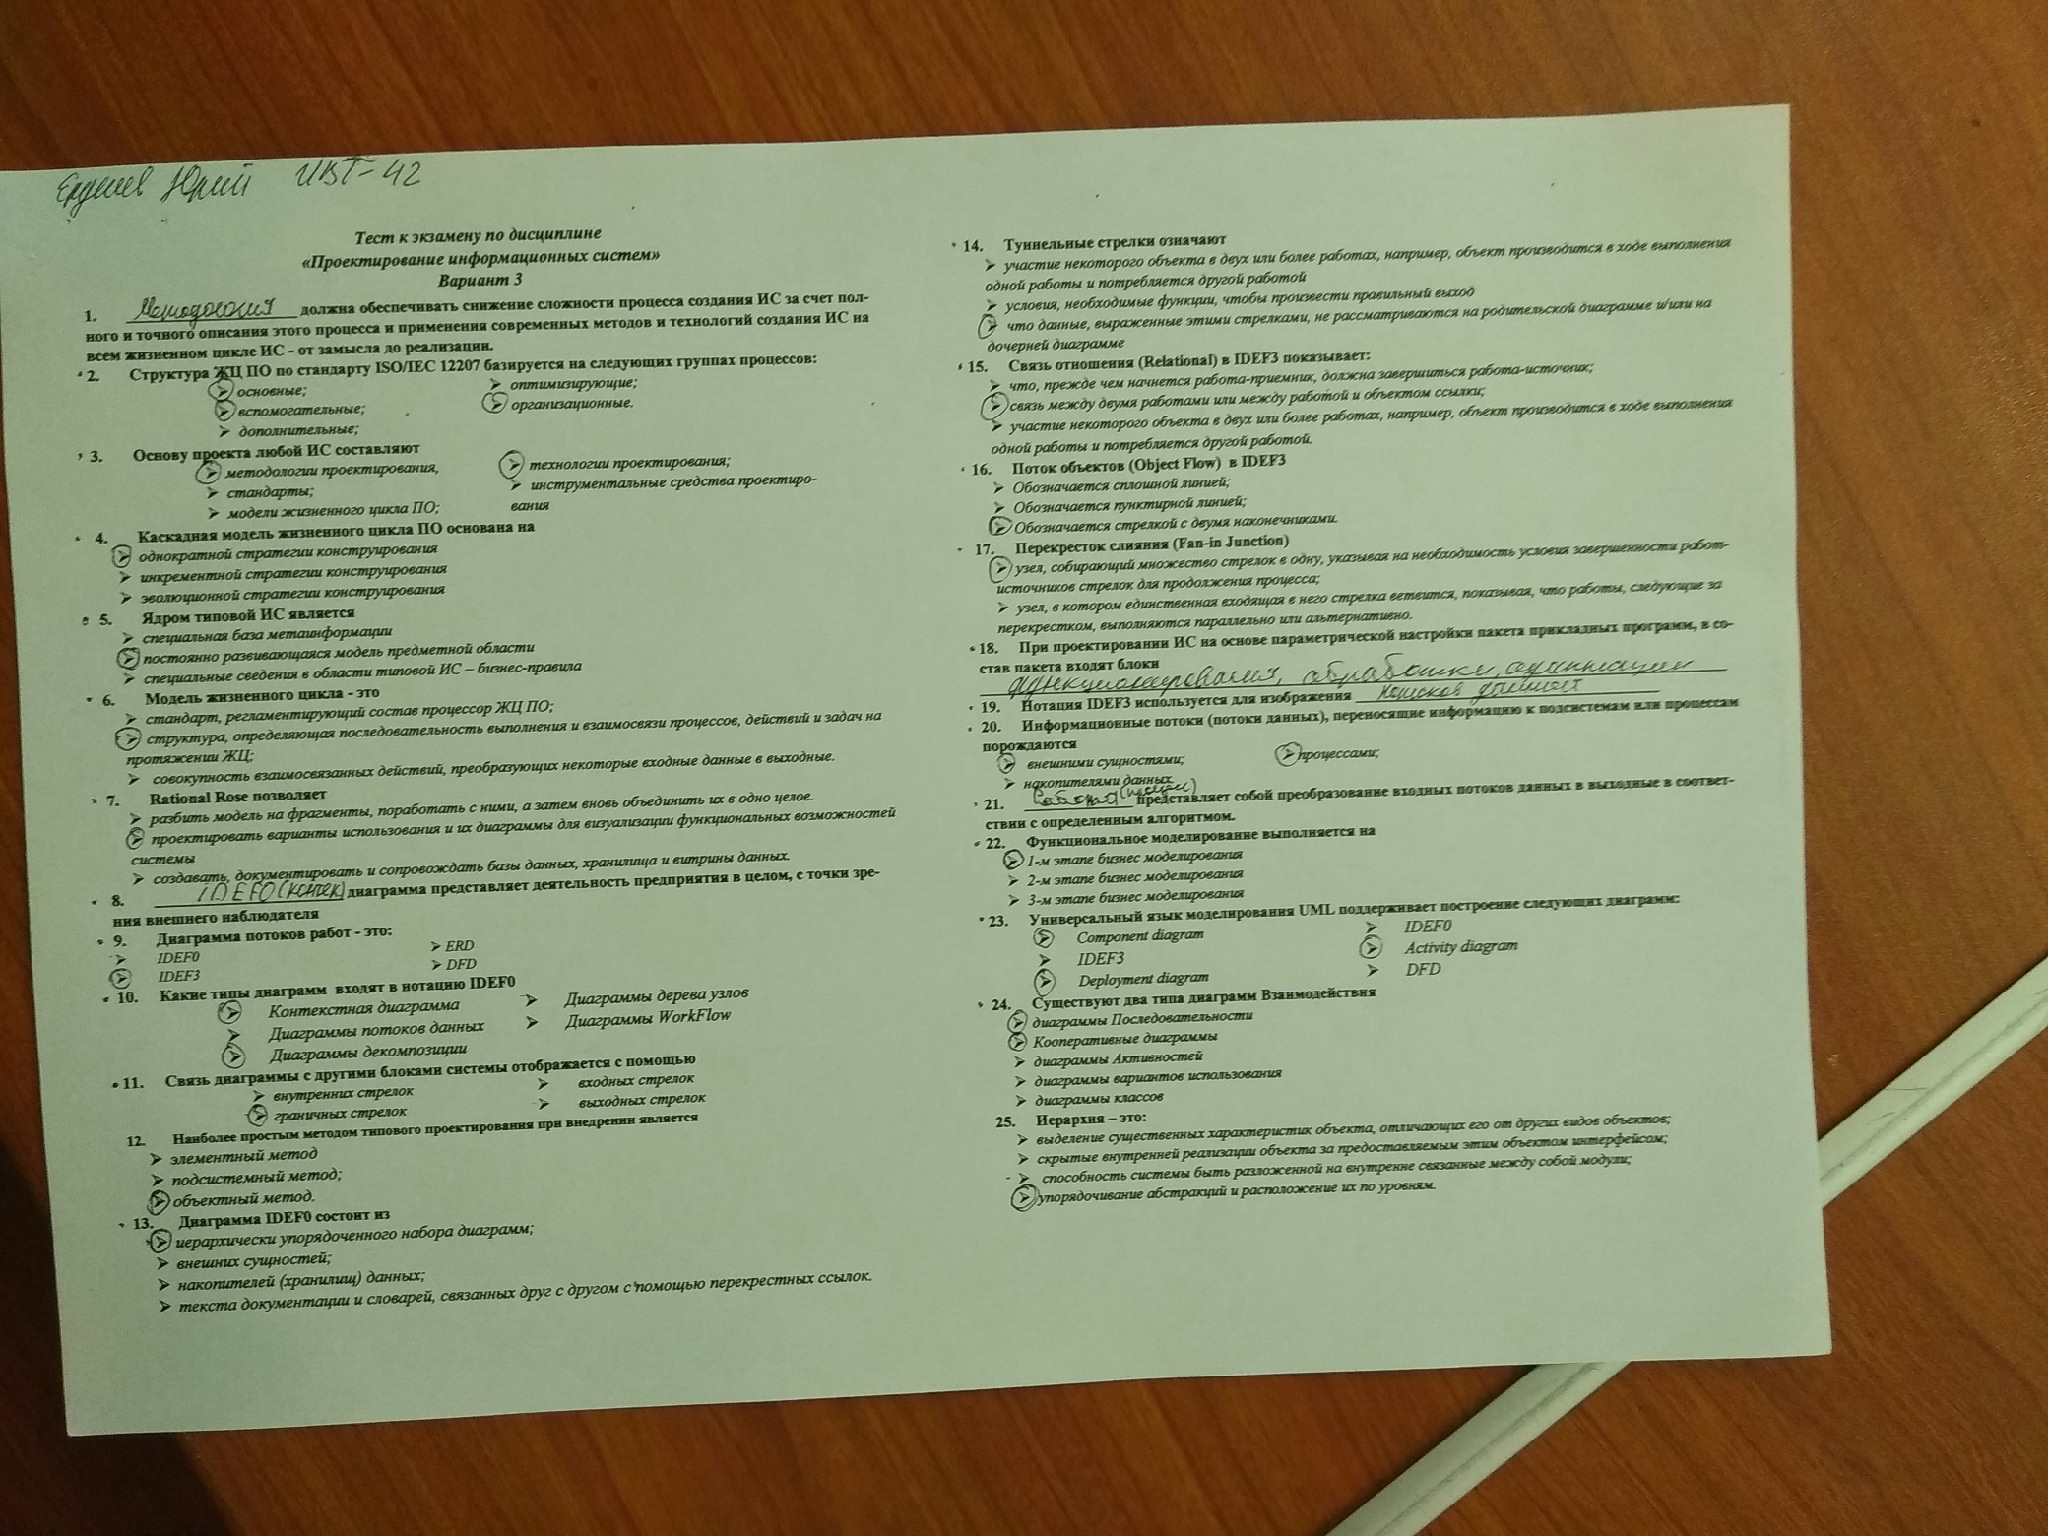 Юрий ИВТ-42
Тест к экзамену по дисциплине
«Проектирование информационных систем»
Вариант 3
1. Методология должна обеспечивать снижение сложности процесса создания ИС за счет пол-
ного и точного описания этого процесса и применения современных методов и технологий создания ИС на
всем жизненном цикле ИС - от замысла до реализации.
2. Структура ЖЦ ПО по стандарту ISO/IEC 12207 базируется на следующих группах процессов:
➢ основные; ➢ оптимизирующие;
➢ вспомогательные; ➢ организационные.
➢ дополнительные;
3. Основу проекта любой ИС составляют
➢ методологии проектирования, ➢ технологии проектирования;
➢ стандарты; ➢ инструментальные средства проектиро-
➢ модели жизненного цикла ПО; вания
4. Каскадная модель жизненного цикла ПО основана на
➢ однократной стратегии конструирования
➢ инкрементной стратегии конструирования
➢ эволюционной стратегии конструирования
5. Ядром типовой ИС является
➢ специальная база метаинформации
➢ постоянно развивающаяся модель предметной области
➢ специальные сведения в области типовой ИС – бизнес-правила
6. Модель жизненного цикла - это
➢ стандарт, регламентирующий состав процессор ЖЦ ПО;
➢ структура, определяющая последовательность выполнения и взаимосвязи процессов, действий и задач на
протяжении ЖЦ;
➢ совокупность взаимосвязанных действий, преобразующих некоторые входные данные в выходные.
7. Rational Rose позволяет
➢ разбить модель на фрагменты, поработать с ними, а затем вновь объединить их в одно целое.
➢ проектировать варианты использования и их диаграммы для визуализации функциональных возможностей
системы
➢ создавать, документировать и сопровождать базы данных, хранилища и витрины данных.
8. IDEF0 (контек) диаграмма представляет деятельность предприятия в целом, с точки зре-
ния внешнего наблюдателя
9. Диаграмма потоков работ - это:
➢ IDEF0 ➢ ERD
➢ IDEF3 ➢ DFD
10. Какие типы диаграмм входят в нотацию IDEF0
➢ Контекстная диаграмма ➢ Диаграммы дерева узлов
➢ Диаграммы потоков данных ➢ Диаграммы WorkFlow
➢ Диаграммы декомпозиции
11. Связь диаграммы с другими блоками системы отображается с помощью
➢ внутренних стрелок ➢ входных стрелок
➢ граничных стрелок ➢ выходных стрелок
12. Наиболее простым методом типового проектирования при внедрении является
➢ элементный метод
➢ подсистемный метод;
➢ объектный метод.
13. Диаграмма IDEF0 состоит из
➢ иерархически упорядоченного набора диаграмм;
➢ внешних сущностей;
➢ накопителей (хранилищ) данных;
➢ текста документации и словарей, связанных друг с другом с помощью перекрестных ссылок.
14. Туннельные стрелки означают
➢ участие некоторого объекта в двух или более работах, например, объект производится в ходе выполнения
одной работы и потребляется другой работой
➢ условия, необходимые функции, чтобы произвести правильный выход
➢ что данные, выраженные этими стрелками, не рассматриваются на родительской диаграмме и/или на
дочерней диаграмме
15. Связь отношения (Relational) в IDEF3 показывает:
➢ что, прежде чем начнется работа-приемник, должна завершиться работа-источник;
➢ связь между двумя работами или между работой и объектом ссылки;
➢ участие некоторого объекта в двух или более работах, например, объект производится в ходе выполнения
одной работы и потребляется другой работой.
16. Поток объектов (Object Flow) в IDEF3
➢ Обозначается сплошной линией;
➢ Обозначается пунктирной линией;
➢ Обозначается стрелкой с двумя наконечниками.
17. Перекресток слияния (Fan-in Junction)
➢ узел, собирающий множество стрелок в одну, указывая на необходимость условия завершенности работ-
источников стрелок для продолжения процесса;
➢ узел, в котором единственная входящая в него стрелка ветвится, показывая, что работы, следующие за
перекрестком, выполняются параллельно или альтернативно.
18. При проектировании ИС на основе параметрической настройки пакета прикладных программ, в со-
став пакета входят блоки
функционирования, обработки,
19. Нотация IDEF3 используется для изображения потоков данных
20. Информационные потоки (потоки данных), переносящие информацию к подсистемам или процессам
порождаются
➢ внешними сущностями; ➢ процессами;
➢ накопителями данных
21. представляет собой преобразование входных потоков данных в выходные в соответ-
ствии с определенным алгоритмом.
22. Функциональное моделирование выполняется на
➢ 1-м этапе бизнес моделирования
➢ 2-м этапе бизнес моделирования
➢ 3-м этапе бизнес моделирования
23. Универсальный язык моделирования UML поддерживает построение следующих диаграмм:
➢ Component diagram ➢ IDEF0
➢ IDEF3 ➢ Activity diagram
➢ Deployment diagram ➢ DFD
24. Существуют два типа диаграмм Взаимодействия
➢ диаграммы Последовательности
➢ Кооперативные диаграммы
➢ диаграммы Активностей
➢ диаграммы вариантов использования
➢ диаграммы классов
25. Иерархия – это:
➢ выделение существенных характеристик объекта, отличающих его от других видов объектов;
➢ скрытые внутренней реализации объекта за предоставляемым этим объектом интерфейсом;
➢ способность системы быть разложенной на внутренне связанные между собой модули;
➢ упорядочивание абстракций и расположение их по уровням.